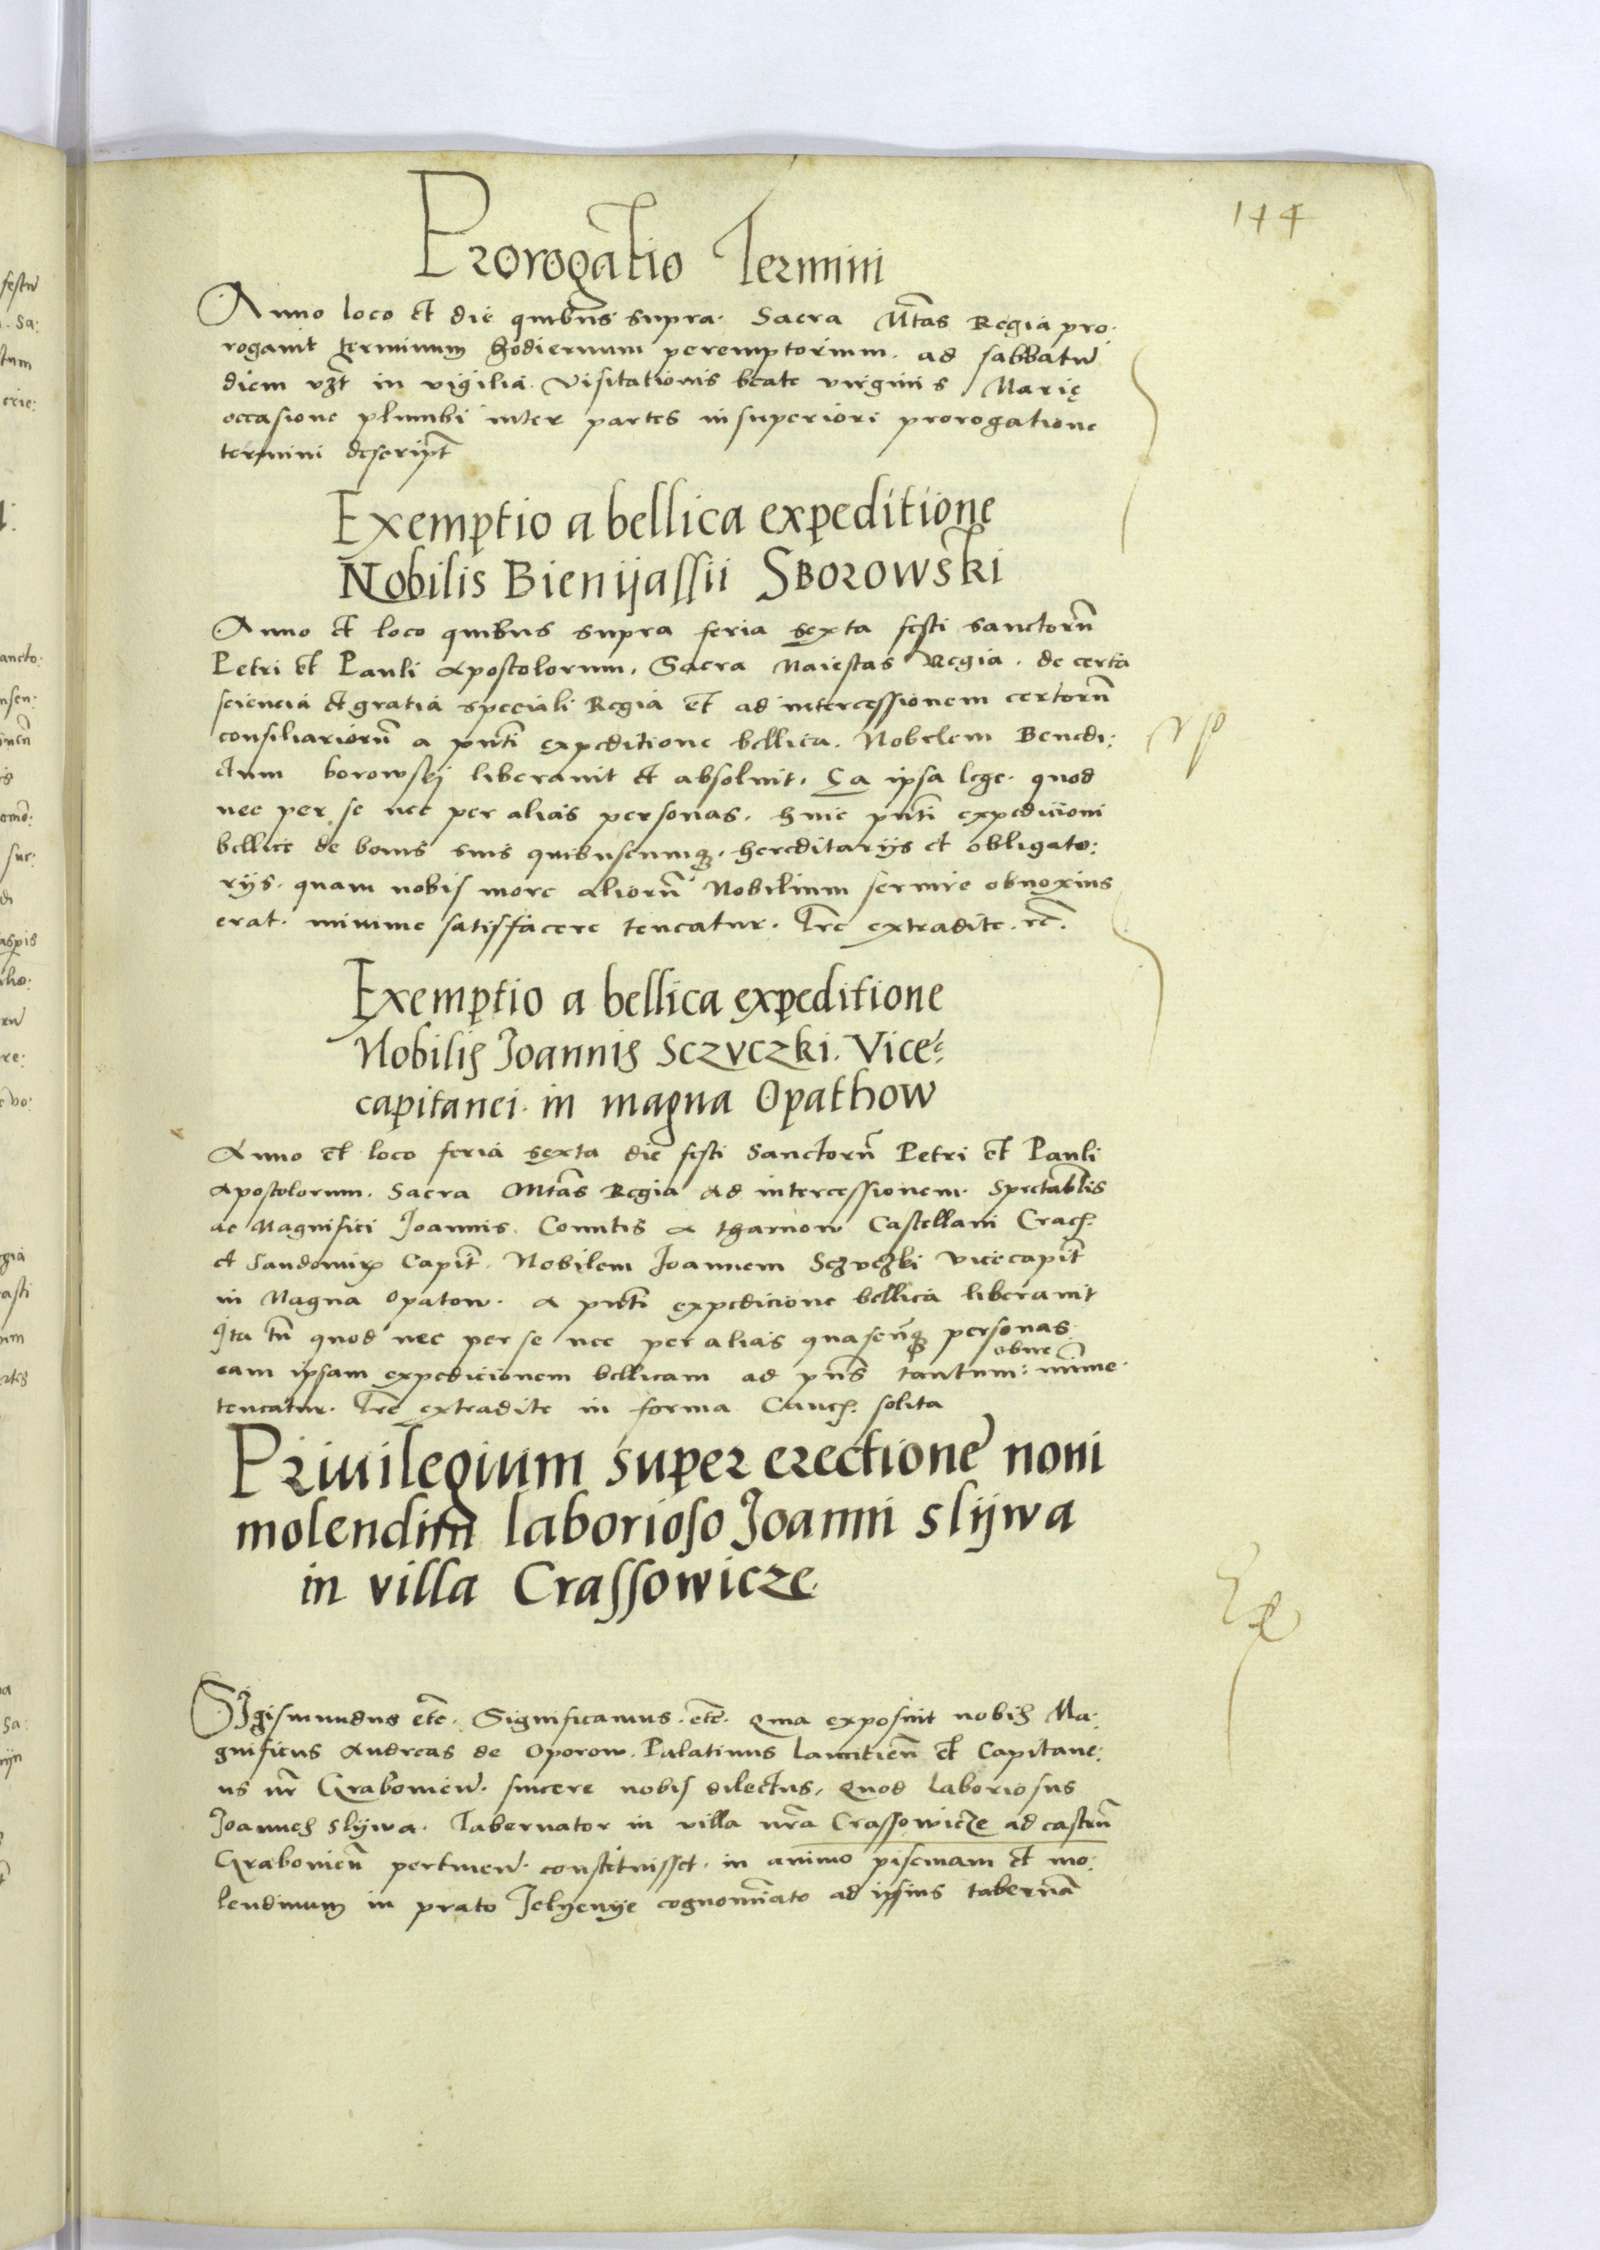 114
Prorogatio Termini
Anno loco et die quibus supra. Sacra Mtas Regia pro:
rogauit terminum hodiernum peremptorium. ad sabbatu
diem vzt in vigilia. Visitationis beate virginis Marię
occasione plumbi inter partes in superiori prorogatione
termini descript
Exemptio a bellica expeditione
Nobilis Bienijassii Sborowski
Anno et loco quibus supra feria sexta festi sanctoru
Petri et Pauli Apostolorum. Sacra Maiestas Regia. de certa
sciencia et gratia speciali Regia et ad intercessionem certoru
consiliarioru a pnti expeditione bellica. Nobilem Benedi:
ctum borowskj liberauit et absoluit. Ea ipsa lege. quod
nec per se nec per alias personas. huic pnti expedicioni
bellice de bonis suis quibuscumq. hereditarijs et obligato:
rijs. quam nobis more alioru Nobilium seruire obnoxius
erat. minime satisfacere teneatur. Lre extradite. rc.
Exemptio a bellica expeditione
Nobilis Joannis Sczvczki. Vice:
capitanei. in magna Opathow
Anno et loco feria sexta die festi Sanctoru Petri et Pauli
Apostolorum. Sacra Mtas Regia ad intercessionem. Spectablis
ac Magnifici Joannis. Comitis a tharnow Castellani Crac.
et Sandomir Capit. Nobilem Joannem Sczvczki vicecapit
in Magna Opatow. a pnti expedicione bellica liberauit
Ita tn quod nec per se nec per alias quascuq personas.
eam ipsam expedicionem bellicam ad pns tantum: obire minime.
teneatur. Lre extradite in forma Canc. solita
Priuilegium super erectione noui
molendini laborioso Joanni slijwa
in villa Crassowicze.
Sigismundus etc. Significamus. etc. Quia exposuit nobis Ma:
gnificus Andreas de Oporow. Palatinus lancicien et Capitane:
us nr Grabouien. sincere nobis dilectus. Quod laboriosus
Joannes slijwa. Tabernator in villa nra Crassowicze ad castru
Grabouien pertinen. constituisset. in animo piscinam et mo:
lendinum in prato Jelyenije cognominato ad ipsius taberna